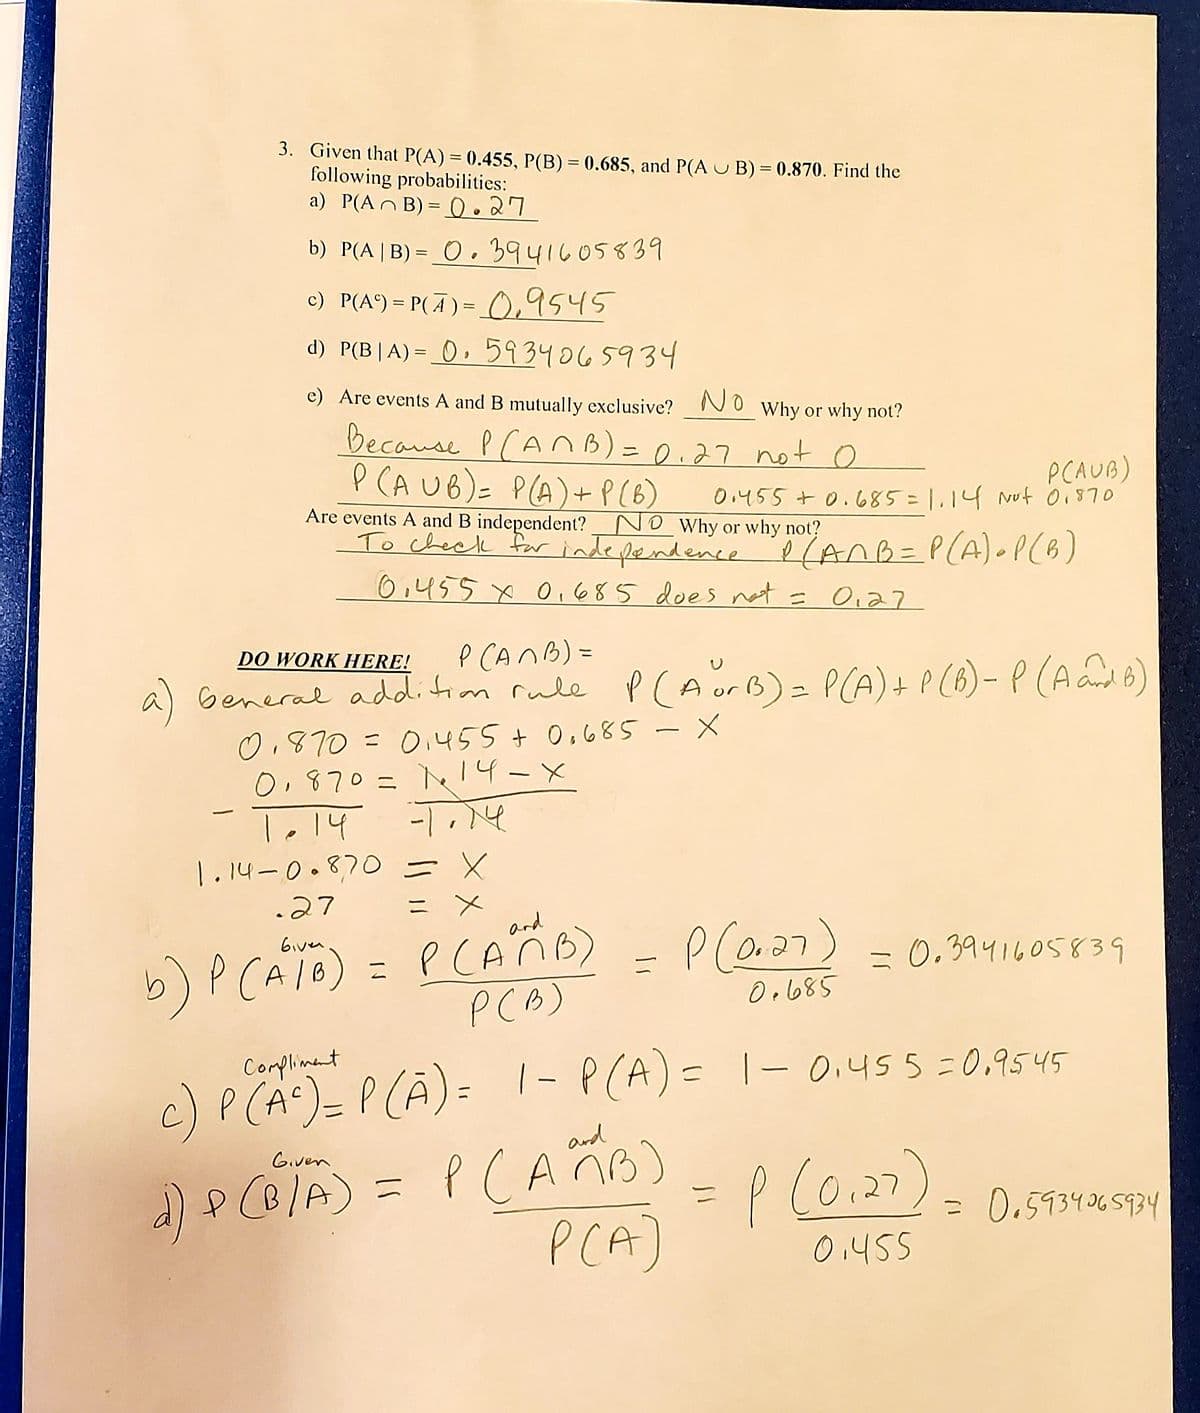 3. Given that P(A) = 0.455, P(B) = 0.685, and P(A ∪ B) = 0.870. Find the
following probabilities:
a) P(A ∩ B) = 0.27
b) P(A | B) = 0.3941605839
c) P(Aᶜ) = P(Ā) = 0.9545
d) P(B | A) = 0.5934065934
e) Are events A and B mutually exclusive? No Why or why not?
Because P(A∩B) = 0.27 not 0
P(A∪B) = P(A) + P(B) 0.455 + 0.685 = 1.14 Not P(A∪B) 0.870
Are events A and B independent? NO Why or why not?
To check for independence P(A∩B = P(A)•P(B)
0.455 × 0.685 does not = 0.27
DO WORK HERE! P(A∩B) =
a) General addition rule P(A ∪ or B) = P(A) + P(B) - P(A ∩ and B)
0.870 = 0.455 + 0.685 - X
0.870 = 1.14 - X
- 1.14 -1.14
1.14 - 0.870 = X
.27 = X
b) P(A Given | B) = P(A and ∩ B) / P(B) = P(0.27) / 0.685 = 0.3941605839
Compliment
c) P(Aᶜ) = P(Ā) = 1 - P(A) = 1 - 0.455 = 0.9545
d) P(B Given | A) = P(A and ∩ B) / P(A) = P(0.27) / 0.455 = 0.5934065934